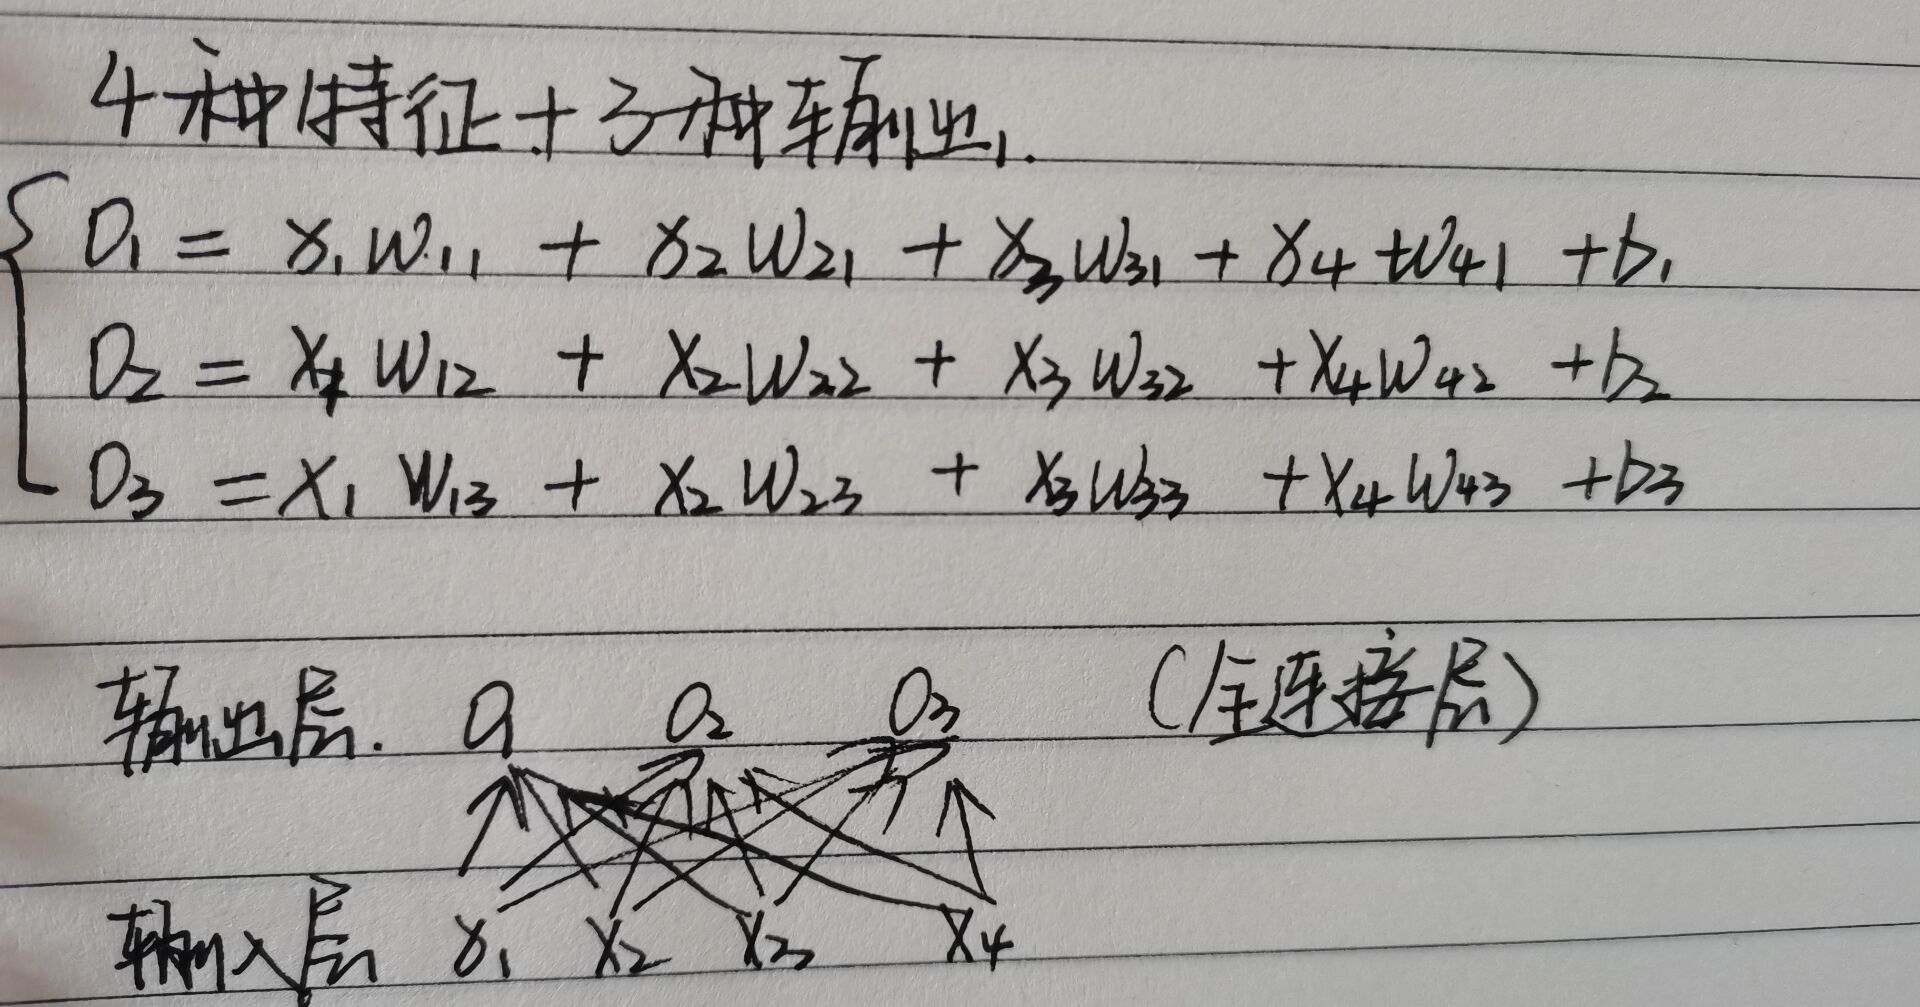 4种特征+3种输出.
O₁ = x₁w₁₁ + x₂w₂₁ + x₃w₃₁ + x₄+w₄₁ + b₁
O₂ = x₁w₁₂ + x₂w₂₂ + x₃w₃₂ + x₄w₄₂ + b₂
O₃ = x₁w₁₃ + x₂w₂₃ + x₃w₃₃ + x₄w₄₃ + b₃
输出层. O₁ O₂ O₃ (全连接层)
输入层 x₁ x₂ x₃ x₄